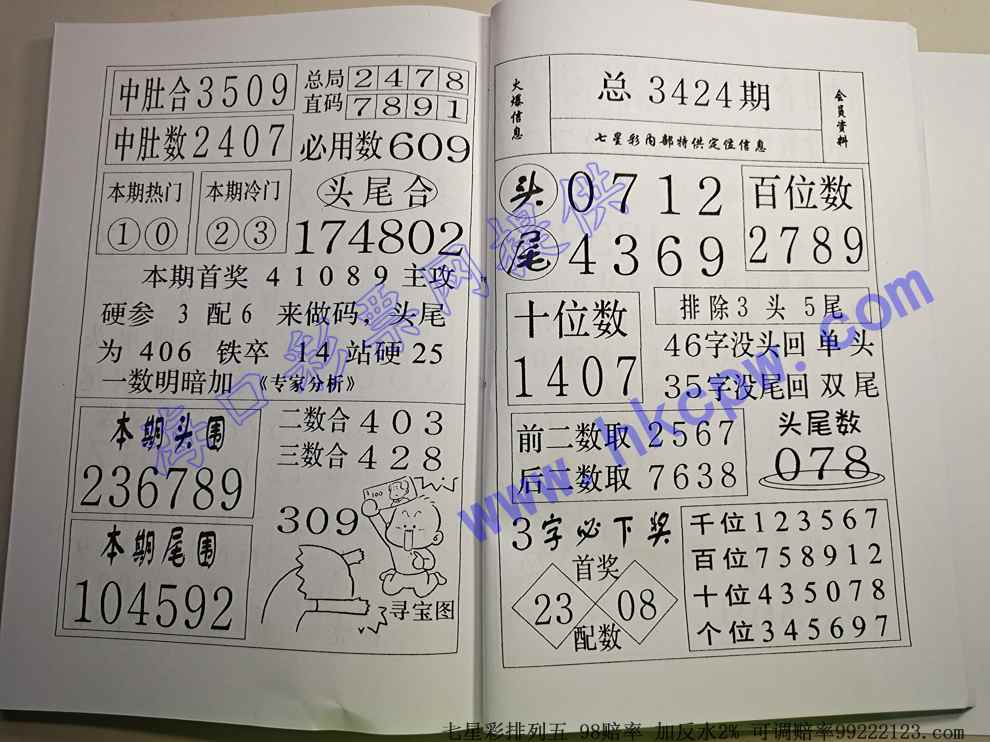 中肚合3509
总局2478
直码7891
中肚数2407
必用数609
本期热门
①⓪
本期冷门
②③
头尾合
174802
本期首奖 41089 主攻
硬参 3 配6 来做码，头尾
为 406 铁卒 14 站硬25
一数明暗加 《专家分析》
本期头围
236789
二数合 403
三数合 428
本期尾围
104592
309
100
寻宝图
火爆信息
总 3424期
会员资料
七星彩内部特供定位信息
头 0712
尾 4369
百位数
2789
十位数
1407
排除3 头 5尾
46字没头回 单 头
35字没尾回 双 尾
前二数取 2567
后二数取 7638
头尾数
078
3字必下奖
首奖
23 08
配数
千位123567
百位758912
十位435078
个位345697
海口彩票网提供
www.hkcpw.com
七星彩排列五 98赔率 加反水2% 可调赔率99222123.com